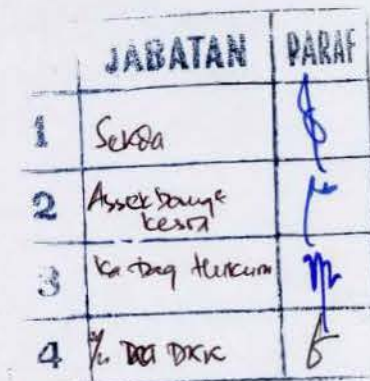 JABATAN PARAF
1 Sekda
2 Assek bang &
Kesra
3 Ka Bag Hukum
4 DKK